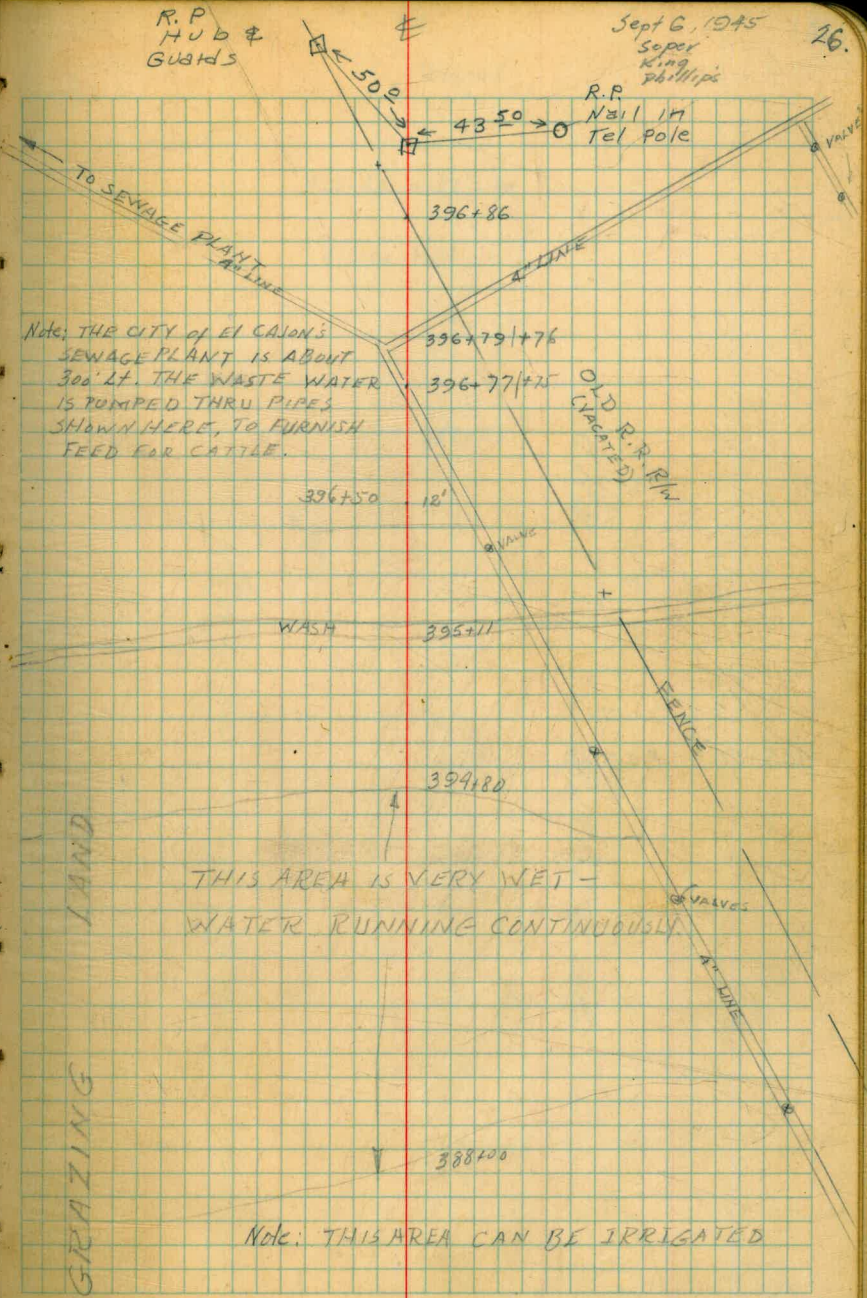 R.P.
Hub &
Guards
℄
Sept 6, 1945
Soper
King
Phillips
26.
50 0
43 50
R.P.
Nail in
Tel Pole
VALVE
TO SEWAGE PLANT
4" LINE
396+86
4" LINE
Note: THE CITY of El CAJON'S
SEWAGE PLANT IS ABOUT
300' Lt. THE WASTE WATER
IS PUMPED THRU PIPES
SHOWN HERE, TO FURNISH
FEED FOR CATTLE.
396+79|+76
396+77|+75
OLD R.R. R/W
(VACATED)
396+50
12'
VALVE
WASH
395+11
FENCE
394+80
THIS AREA IS VERY WET -
WATER RUNNING CONTINUOUSLY
VALVES
4" LINE
GRAZING LAND
388+00
Note: THIS AREA CAN BE IRRIGATED